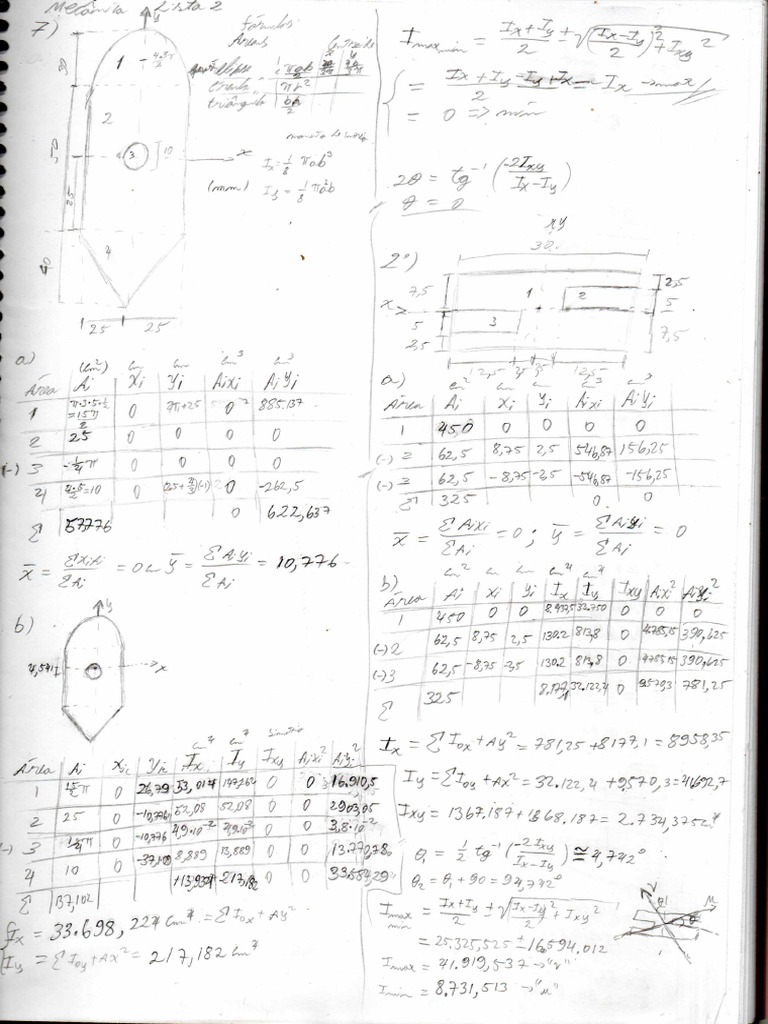 Mecânica Lista 2
7)
Fórmulas
Áreas
triângulo bh/2
1
2
3
4
10
50
25
40
25 25
x
y
(mm)
Ix = 1/8 πab³
Iy = 1/8 πa³b
a)
Área Ai Xi Yi AiXi AiYi
1 0 2π+25 0 885.137
2 25 0 0 0 0
(-) 3 -1/4 π 0 0 0 0
4 4.5=10 0 0 -262,5
Σ 57,776 0 622,637
x̄ = ΣXiAi/ΣAi = 0 cm ȳ = ΣAiyi/ΣAi = 10,776
b)
y
x
Área Ai Xi Yi Ix Iy Ixy Aixi² Aiyi²
1 15/2 π 0 26,79 33,014 147,262 0 0 16.910,5
2 25 0 -10,776 52,08 52,08 0 0 2903,05
(-) 3 1/4 π 0 -10,776 4,9·10⁻² 4,9·10⁻² 0 0 3,8·10⁻²
4 10 0 8,889 13,889 0 0 13.770,780
Σ 137,102 217,182 0 0
Ix = 33.698,224 cm⁴ = ΣIox + Ay²
Iy = ΣIoy + Ax² = 217,182 cm⁴
Imax min = Ix+Iy/2 ± √(Ix-Iy/2)² + Ixy²
= Ix + Iy - Iy + Ix / 2 = Ix → max
= 0 => min
2θ = tg⁻¹ (-2Ixy/Ix-Iy)
θ = 0
2º)
30
7,5
x
5
2,5
1
2
3
2,5
5
7,5
12,5 12,5
a)
cm² cm cm cm³ cm³
Área Ai xi yi Aixi AiYi
1 450 0 0 0 0
(-) 2 62,5 8,75 2,5 546,87 156,25
(-) 3 62,5 -8,75 -2,5 -546,87 -156,25
Σ 325 0 0
x̄ = ΣAixi/ΣAi = 0 ; ȳ = ΣAiyi/ΣAi = 0
b)
cm² cm cm cm⁴ cm⁴
Área Ai xi yi Ix Iy Ixy Aixi² Aiyi²
1 450 0 0 8.437,5 33.750 0 0 0
(-) 2 62,5 8,75 2,5 130.2 813,8 0 4785,15 390,625
(-) 3 62,5 -8,75 -2,5 130.2 813,8 0 4785,15 390,625
Σ 325 8.177,1 32.122,4 0 9570,3 781,25
Ix = ΣIox + Ay² = 781,25 + 8177,1 = 8958,35
Iy = ΣIoy + Ax² = 32.122,4 + 9,570,3 = 41692,7
Ixy = 1367.187 + 1368.187 = 2.734,375 cm⁴
θ₁ = 1/2 tg⁻¹ (-2Ixy/Ix-Iy) ≅ 4,742°
θ₂ = θ₁ + 90 = 94,742°
Imax min = Ix+Iy/2 ± √(Ix-Iy/2)² + Ixy²
= 25.325,525 ± 16594.012
Imax = 41.919,537 → "v"
Imin = 8.731,513 → "u"